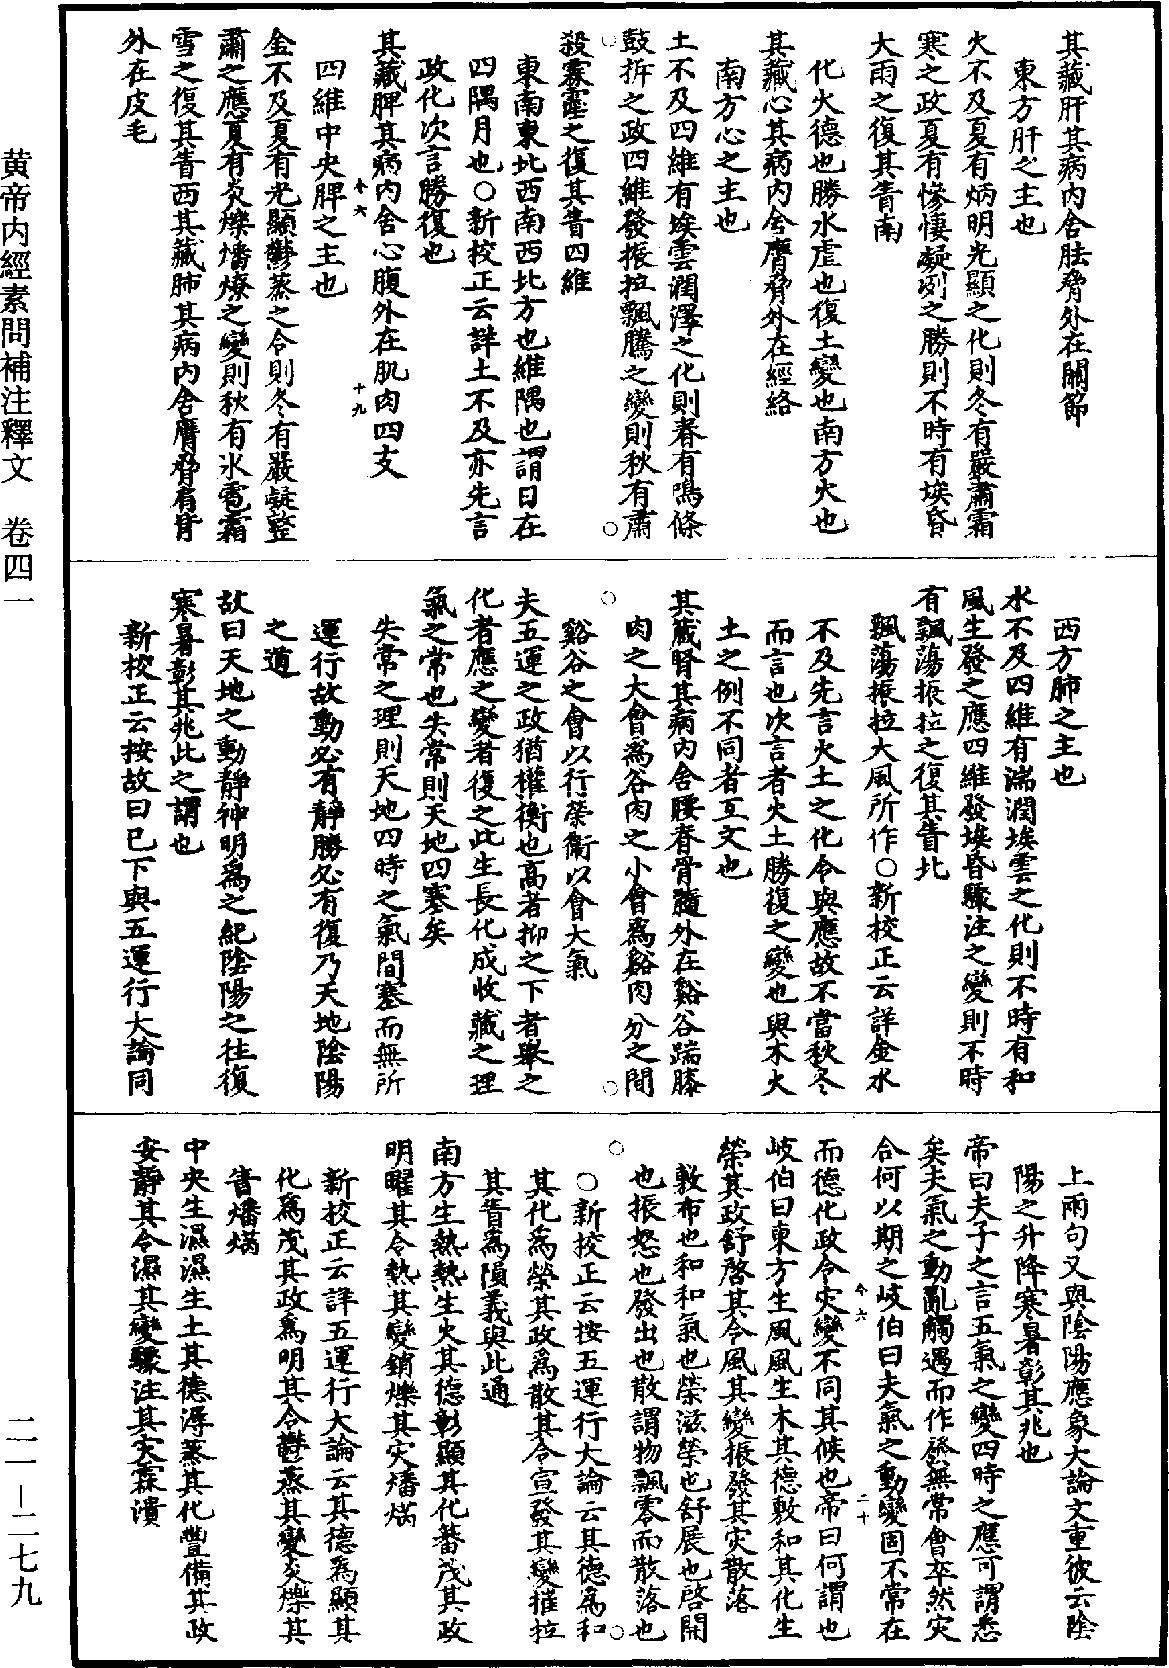 其藏肝其病内舍胠脅外在關節
東方肝之主也
火不及夏有炳明光顯之化則冬有嚴肅霜
寒之政夏有慘悽凝冽之勝則不時有埃昏
大雨之復其眚南
化火德也勝水虐也復土變也南方火也
其藏心其病内舍膺脅外在經絡
南方心之主也
土不及四維有埃雲潤澤之化則春有鳴條
鼓拆之政四維發振拉飄騰之變則秋有肅
殺霖霪之復其眚四維
東南東北西南西北方也維隅也謂日在
四隅月也○新校正云詳土不及亦先言
政化次言勝復也
其藏脾其病内舍心腹外在肌肉四支
四維中央脾之主也
金不及夏有光顯鬱蒸之令則冬有嚴凝整
肅之應夏有炎爍燔燎之變則秋有冰雹霜
雪之復其眚西其藏肺其病内舍膺脅肩背
外在皮毛
西方肺之主也
水不及四維有湍潤埃雲之化則不時有和
風生發之應四維發埃昏驟注之變則不時
有飄蕩振拉之復其眚北
飄蕩振拉大風所作○新校正云詳金水
不及先言火土之化令與應故不當秋冬
而言也次言者火土勝復之變也與木火
土之例不同者互文也
其藏腎其病内舍腰脊骨髓外在谿谷踹膝
肉之大會爲谷肉之小會爲谿肉分之間
谿谷之會以行榮衛以會大氣
夫五運之政猶權衡也高者抑之下者舉之
化者應之變者復之此生長化成收藏之理
氣之常也失常則天地四塞矣
失常之理則天地四時之氣閉塞而無所
運行故動必有靜勝必有復乃天地陰陽
之道
故曰天地之動靜神明爲之紀陰陽之往復
寒暑彰其兆此之謂也
新校正云按故曰已下與五運行大論同
上兩句又與陰陽應象大論文重彼云陰
陽之升降寒暑彰其兆也
帝曰夫子之言五氣之變四時之應可謂悉
矣夫氣之動亂觸遇而作發無常會卒然灾
合何以期之岐伯曰夫氣之動變固不常在
而德化政令灾變不同其候也帝曰何謂也
岐伯曰東方生風風生木其德敷和其化生
榮其政舒啓其令風其變振發其灾散落
敷布也和和氣也榮滋榮也舒展也啓開
也振怒也發出也散謂物飄零而散落也
○新校正云按五運行大論云其德爲和
其化爲榮其政爲散其令宣發其變摧拉
其眚爲隕義與此通
南方生熱熱生火其德彰顯其化蕃茂其政
明曜其令熱其變銷爍其灾燔焫
新校正云詳五運行大論云其德爲顯其
化爲茂其政爲明其令鬱蒸其變炎爍其
眚燔焫
中央生濕濕生土其德溽蒸其化豐備其政
安靜其令濕其變驟注其灾霖潰
黄帝内經素問補注釋文　卷四一
二一—二七九